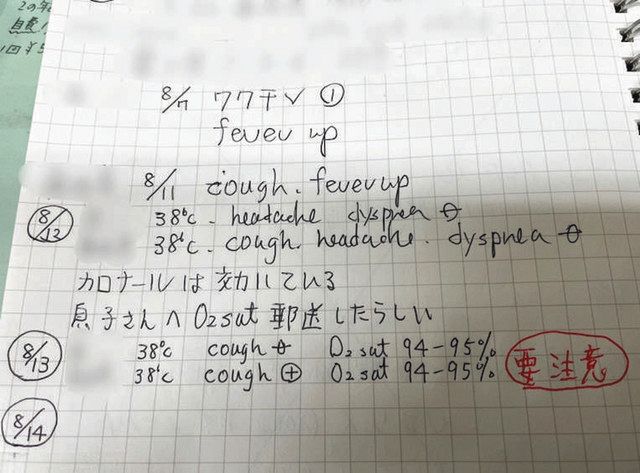 8/7 ワクチン ①
fever up
8/11 cough. fever up
8/12 38℃. headache dyspnea ⊖
38℃. cough. headache. dyspnea ⊖
カロナールは効いている
息子さんへ O₂sat 郵送したらしい
8/13 38℃ cough ⊖ O₂sat 94-95%
38℃ cough ⊕ O₂sat 94-95% 要注意
8/14